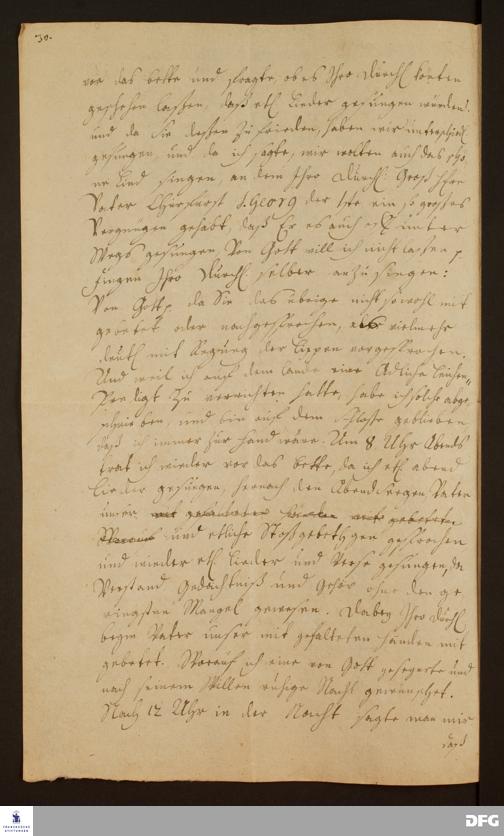 30.
vor das bette und fragte, ob es Ihro Durchl. könten
geschehen lassen, daß etl. Lieder gesungen würden.
und da sie dessen zu frieden, haben wir unterschiedl.
gesungen, und da ich sagte, wir wolten auch das schö,
ne Lied singen, an dem Ihro Durchl. Groß Herr
Vater Churfürst J. Georg der 1ste ein so großes
Vergnügen gehabt, daß Er es auch oft unter
Wegs gesungen, Von Gott will ich nicht lassen,
fingen Ihro Durchl. selber an zu singen:
Von Gott p. da Sie das übrige nicht sowohl mit
gebetet oder nachgesprochen, als vielmehr
deutl. mit Regung der Lippen vorgesprochen.
Und weil ich auf dem Lande eine Adliche Leichen-
Predigt zu verrichten hatte, habe ich solche abge,
schrieben, und bin auf dem Schloße geblieben
daß ich immer zur Hand wäre. Um 8. Uhr Abends
trat ich wieder vor das bette, da ich etl. abend
Lieder gesungen, hernach den Abend Seegen Vater
unser
und etliche Stoßgebethgen gesprochen
und wieder etl. Lieder und Verse gesungen, da
Verstand Gedächtniß und Gehör ohne den ge
ringsten Mangel gewesen. Dabey Ihro Durchl.
beym Vater unser mit gefaltenen Händen mit
gebetet. Worauf ich eine von Gott gesegnete und
nach seinem Willen ruhige Nacht gewünschet.
Nach 12 Uhr in der Nacht sagte man mir
daß
FRANCKESCHE STIFTUNGEN
DFG